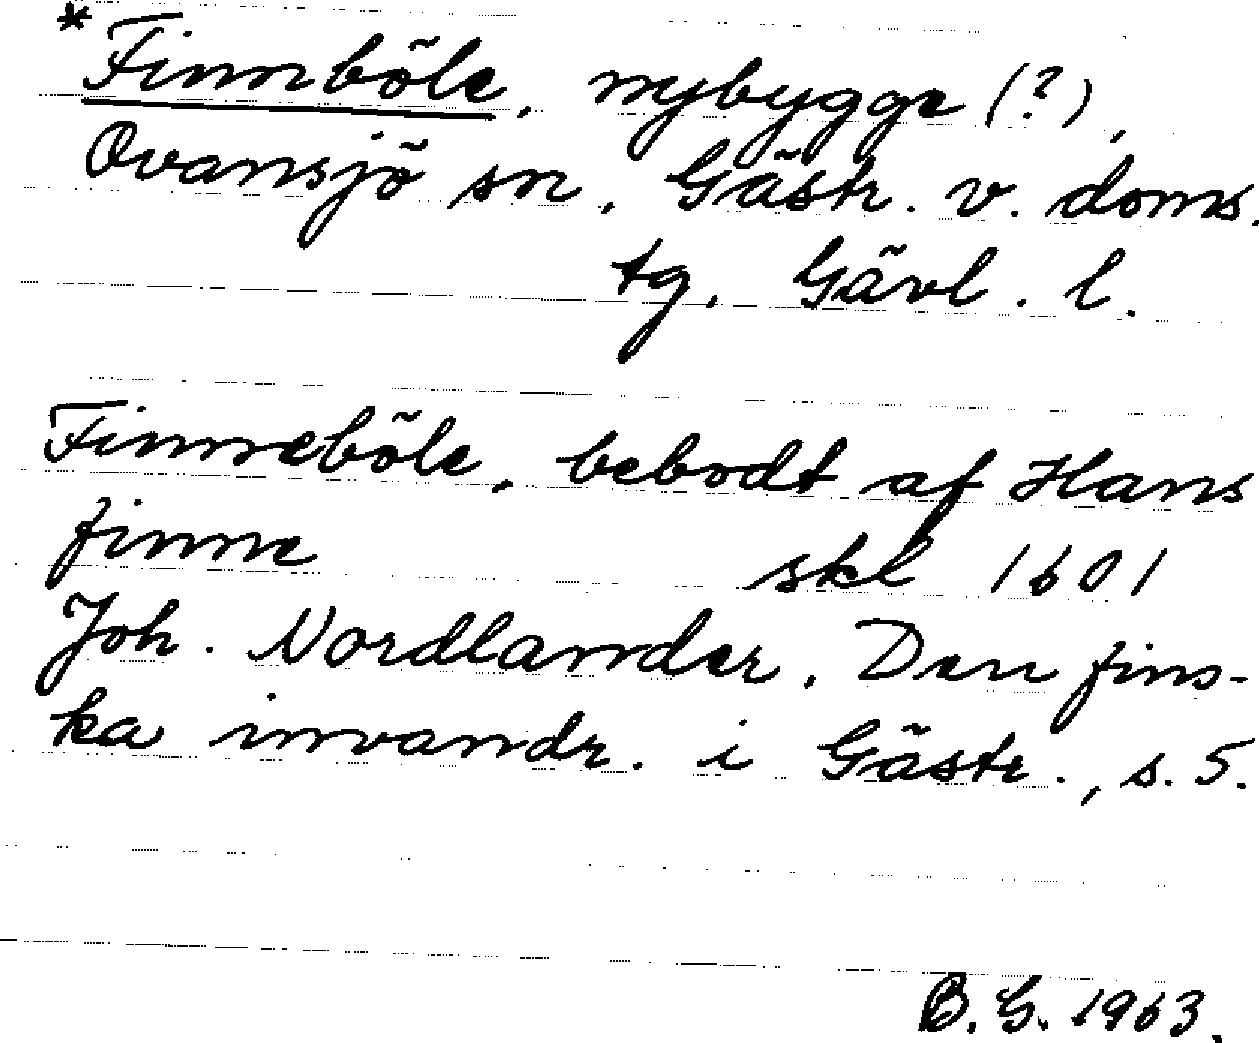 *Finnböle, nybygge (?),
Ovansjö sn, Gästr. v. doms.
tg, Gävl. l.
Finneböle, bebodt af Hans
finne skl 1601
Joh. Nordlander, Den fins-
ka invandr. i Gästr., s. 5.
B. G. 1963.